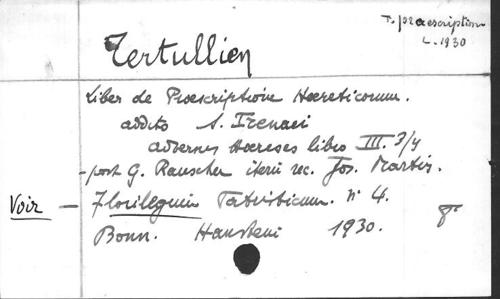 T. praescription
L. 1930
Tertullien
Liber de Praescriptione Haereticorum.
addito S. Irenaei
adversus Haereses libro III. 3/4
- post G. Rauschen iterum rec. Jos. Martin.
Voir - Florilegium Patristicum. n° 4.
Bonn. Hanstein 1930. 8°